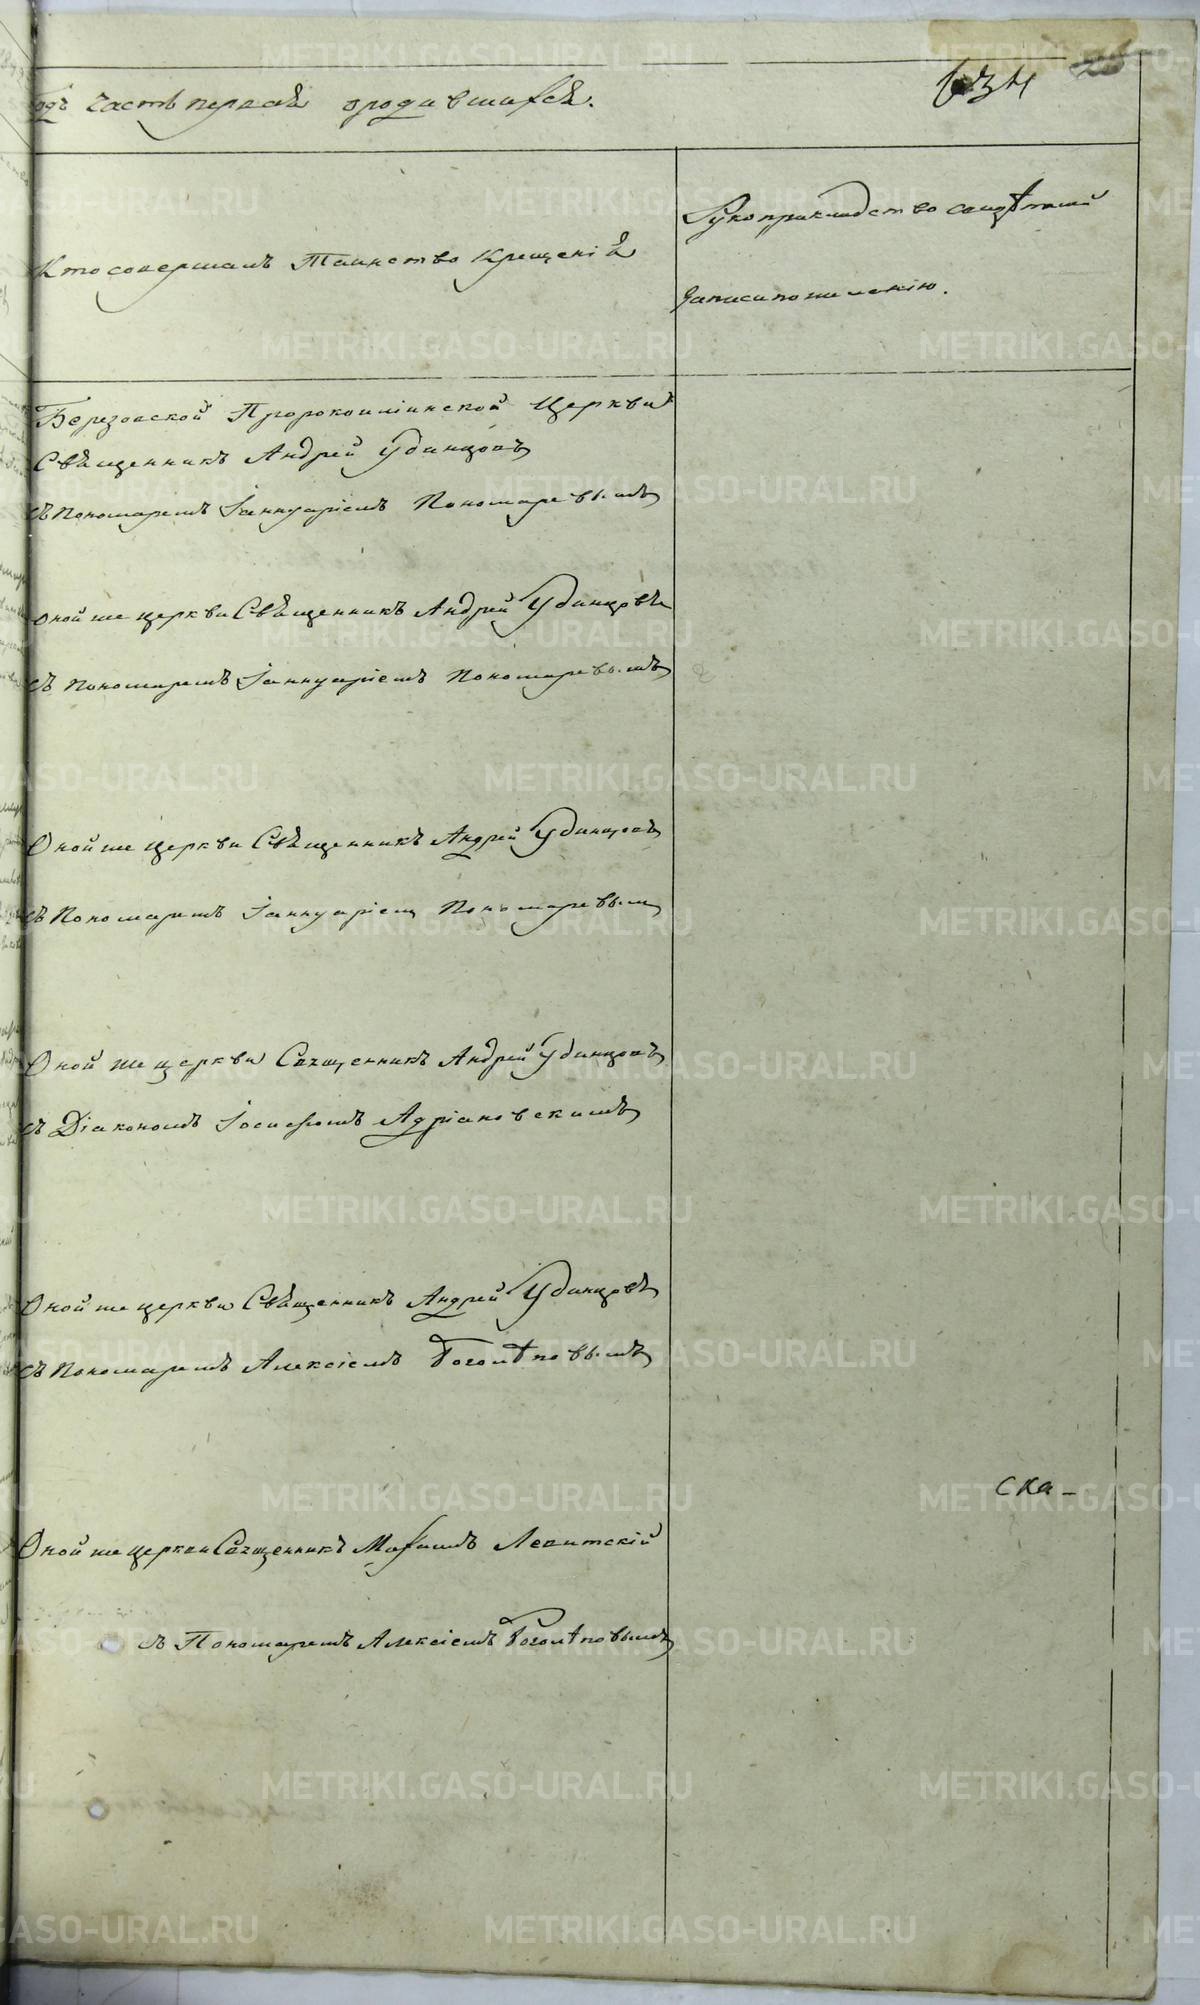 634
годъ часть первая о родившихся.
Кто совершалъ Таинство Крещенія
Рукоприкладство свидѣтелей
записи по желанію.
Березовской Пророкоилiинской Церкви
Священникъ Андрей Удинцовъ
съ Пономаремъ Іаннуаріемъ Пономаревымъ
Оной же церкви Священникъ Андрей Удинцовъ
съ Пономаремъ Іаннуаріемъ Пономаревымъ
Оной же церкви Священникъ Андрей Удинцовъ
съ Пономаремъ Іаннуаріем Пономаревым
Оной же церкви Священникъ Андрей Удинцовъ
съ Діакономъ Іосифомъ Адріановскимъ
Оной же церкви Священникъ Андрей Удинцовъ
съ Пономаремъ Алексіемъ Боголѣповымъ
ска-
Оной же церкви Священникъ Максимъ Левитскій
съ Пономаремъ Алексіемъ Боголѣповымъ
METRIKI.GASO-URAL.RU